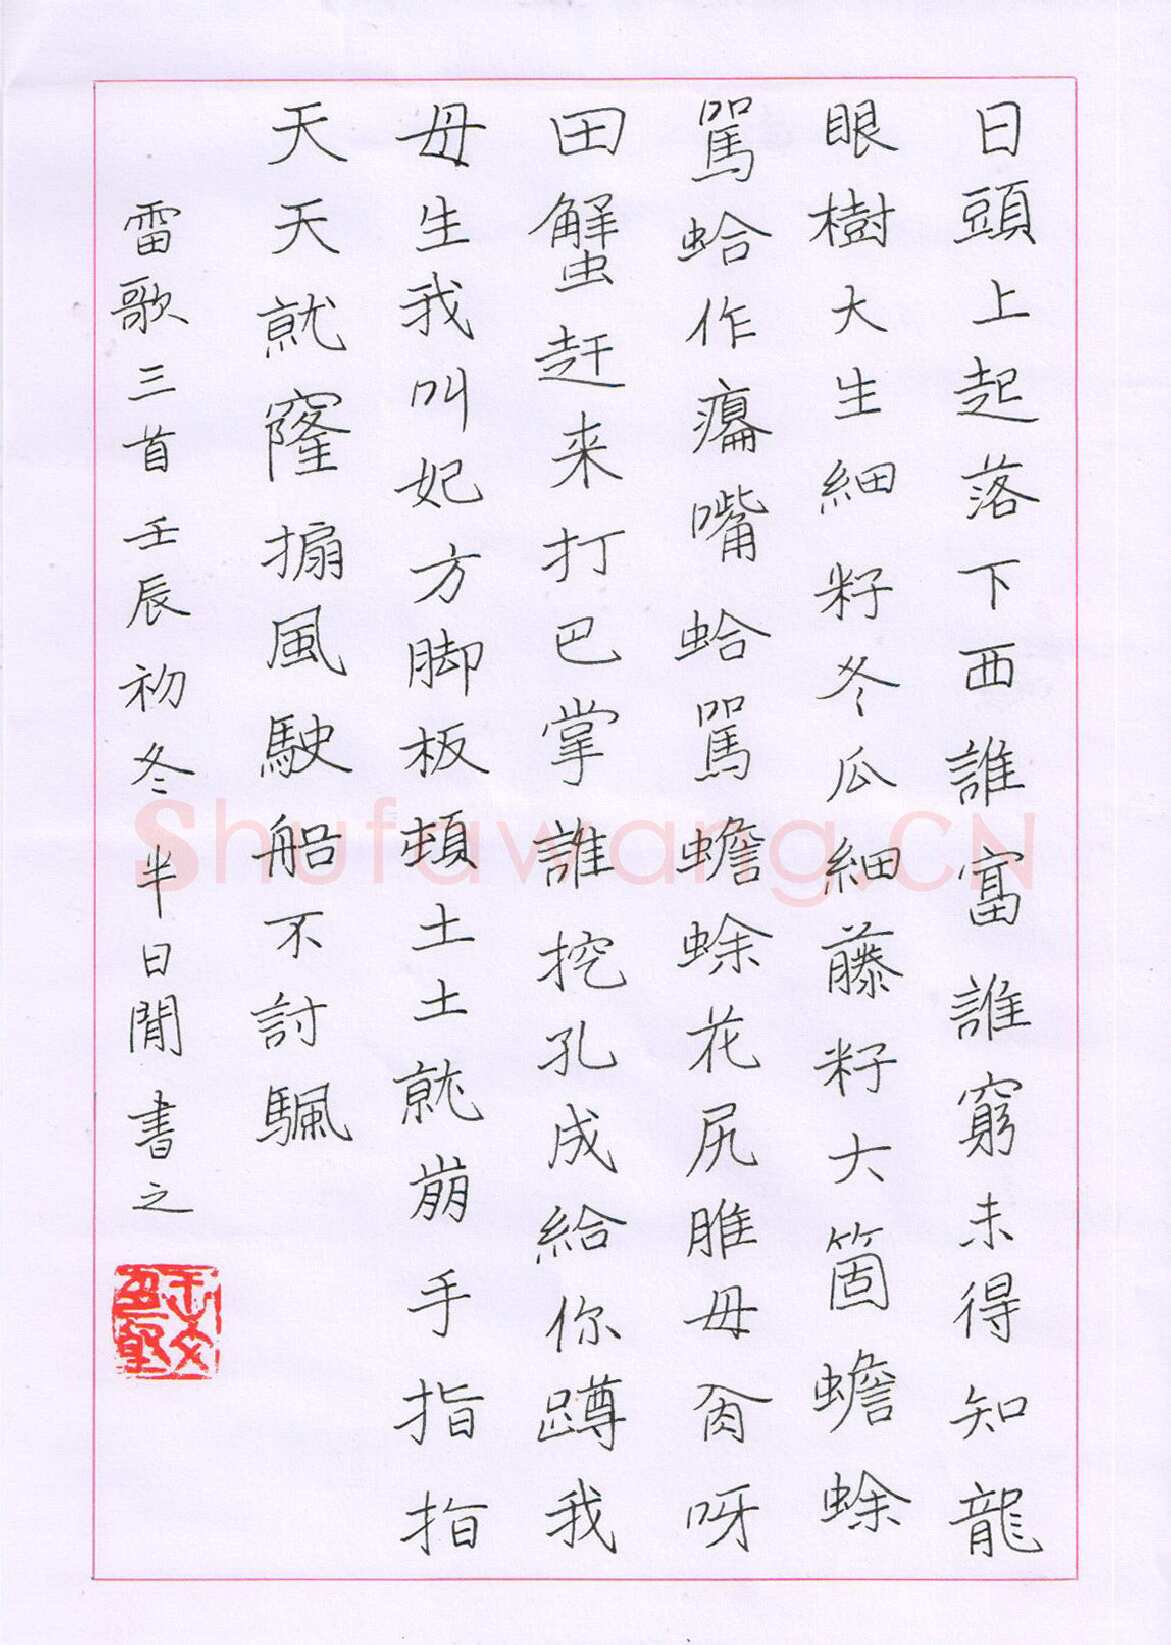 日頭上起落下西誰富誰窮未得知龍
眼樹大生細籽冬瓜細藤籽大箇蟾蜍
罵蛤作癟嘴蛤罵蟾蜍花尻脽毋肏呀
田蟹赶来打巴掌誰挖孔成給你蹲我
母生我叫妃方脚板頓土土就崩手指指
天天就窿搧風駛船不討颿
雷歌三首壬辰初冬半日閒書之
Shufawang.CN